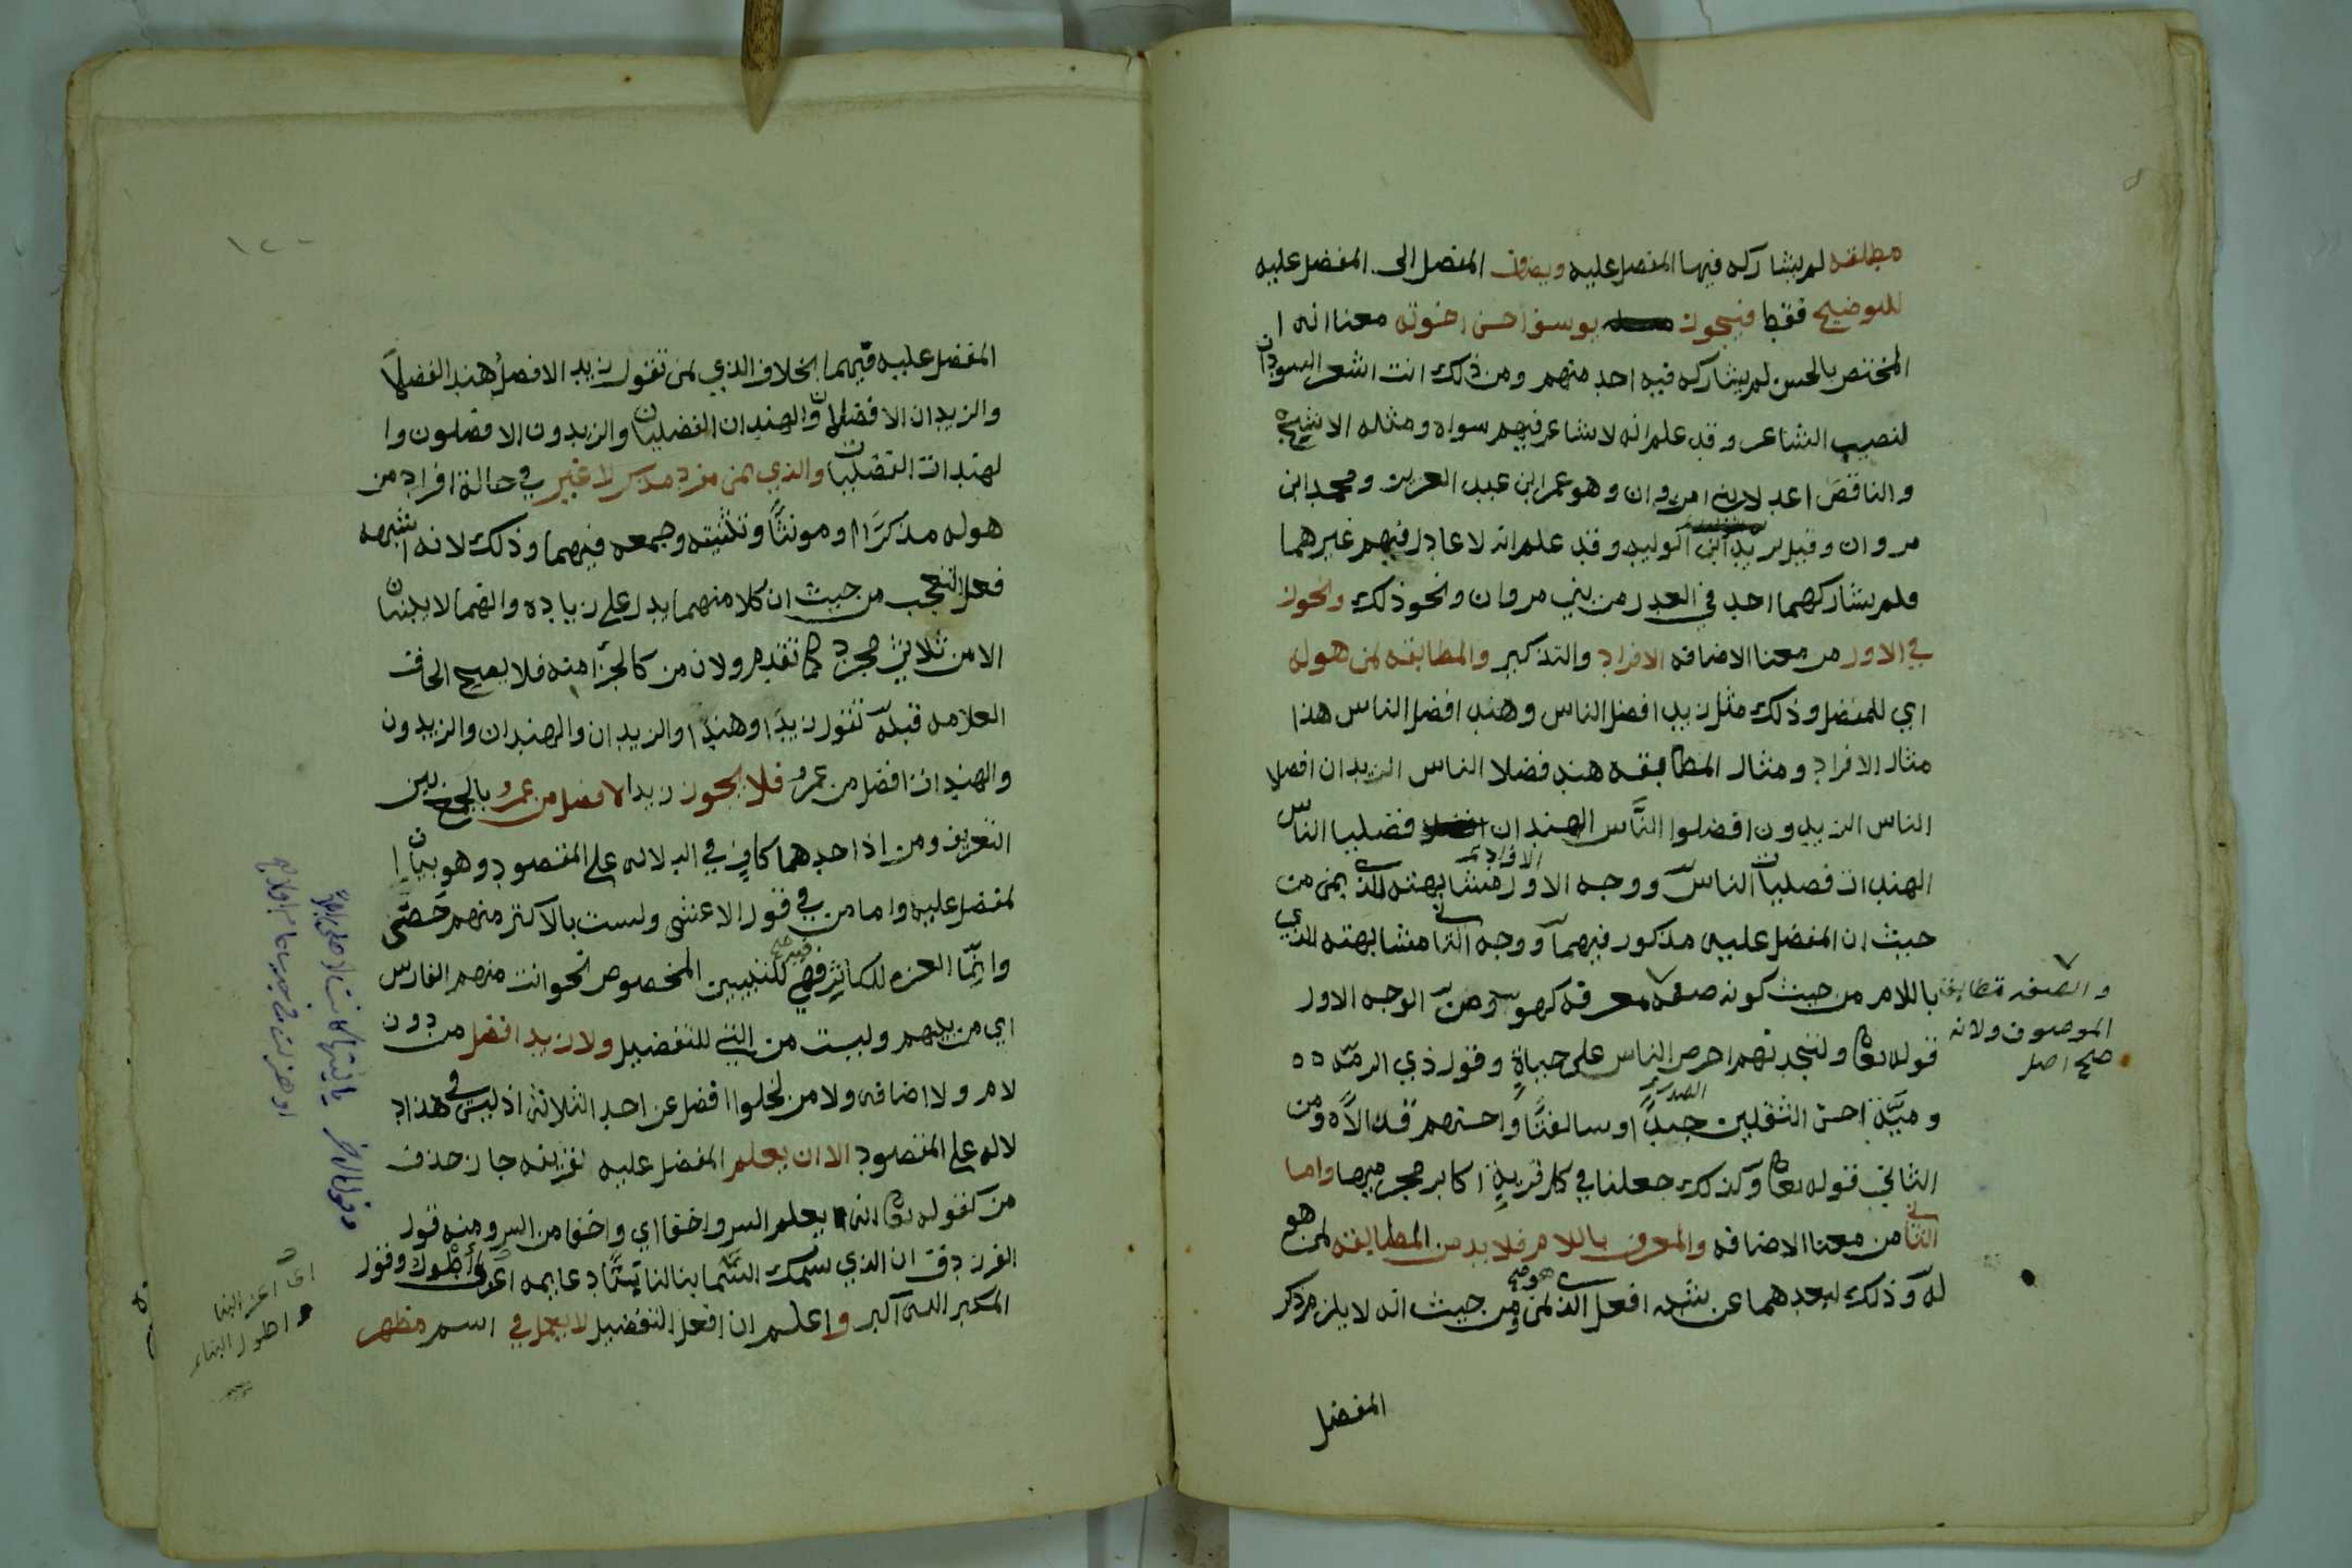 مطلقه لم يشاركه فيها المفضل عليه ويضاف المفضل الى المفضل عليه
للتوضيح فقط فيجوز يوسف احسن اخوته معنا انه ا
لمختص بالحسن لم يشاركه فيه احد منهم ومن ذلك انت اشعر السودان
لنصيب الشاعر وقد علم انه لا شاعر فيهم سواه ومثله الاشج
والناقص اعدلا بني امروان وهو عمر ابن عبد العزيز ومحمد ابن
مروان وقيل يزيد ابن الوليد وقد علم انه لا عادل فيهم غيرهما
فلم يشاركهما احد في العدل من بني مروان ونحو ذلك ويجوز
في الاول من معنا الاضافه الافراد والتذكير والمطابقه لمن هو له
اي للمفضل وذلك مثل زيد افضل الناس وهند افضل الناس هذا
مثال الافراد ومثال المطابقه هند فضلا الناس الزيدان افضلا
الناس الزيدون افضلوا النَّاس الهندان فضليا الناس
الهندات فضليات الناس ووجه الاول الافراد مشابهته الذي بمن من
حيث ان المفضل عليه مذكور فيهما ووجه الثاني مشابهته الذي
باللام من حيث كونه صفه معرفه كهو ومن الوجه الاول
والصفه تطابق
الموصوف ولانه
صح اصل
قوله تعا ولتجدنهم احرص الناس على حياةٍ وقول ذي الرمّه ه ه
وميَّة احسن الثقلين جيدًا وسالفتًا واحسنهم قذالاً ه ومن
الثاني قوله تعا وكذلك جعلنا في كل قريةٍ اكابر مجرميها واما
الثاني من معنا الاضافه والمعرف باللام فلا بد من المطابقه لمن هو
له وذلك لبعدهما عن شبه افعل الذي بمن ومن حيث انه لا يلزم ذكر
المفضل
المفضل عليه فيهما بخلاف الذي بمن تقول زيد الافضل هند الفضلا
والزيدان الافضلان والهندان الفضليان والزيدون الافضلون وا
لهندات الفضليات والذي بمن مفرد مذكر لا غير في حالة افراد من
هو له مذكرًا ومونثًا وتثنيته وجمعه فيهما وذلك لانه اشبه
فعل التعجب من حيث ان كلا منهما يدل على زياده وانهما لا يبنيان
الا من ثلاثي مجرد كما تقدم ولان من كالجزء منه فلا يصح الحاق
العلامه قبله تقول زيدًا وهندًا والزيدان والهندان والزيدون
والهندات افضل من عمرو فلا يجوز زيدا لافضل من عمرو بالجمع بين
التعريف ومن اذ احدهما كافٍ في الدلاله على المقصود وهو بيان ا
لمفضل عليه واما من في قول الاعشى ولست بالاكثر منهم حَصَّى
وانّما العزه للكاثر فهي للتبيين المخصوص نحو انت منهم الفارس
اي من بينهم وليست من التي للتفضيل ولا زيد افضل من دون
لام ولا اضافه ولا من لخلوا افضل عن احد الثلاثه اذ ليس في هذا د
لاله على المقصود الا ان يعلم المفضل عليه لقرينه جاز حذف
من كقوله تعا انه يعلم السر واخفا اي واخفا من السر ومنه قول
الفرزدق ان الذي سمك السّما بنا لنا بيتًا دعايمه اعز واطول وقول
المكبر الله اكبر واعلم ان افعل التفضيل لا يعمل في اسم مظهر
اي اعز البنا
واطول البناء